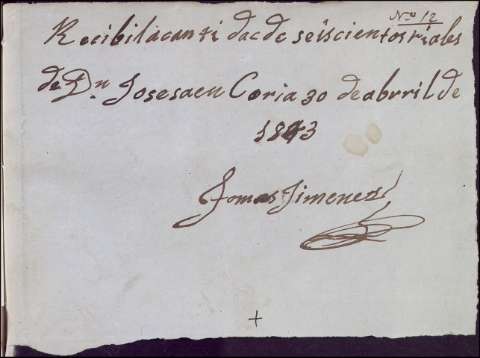 Nº 12
Recibi lacanti dac de seiscientos riales
de Dn Josesaen Coria 30 de abrril de
1843
Tomas Jimenez
+